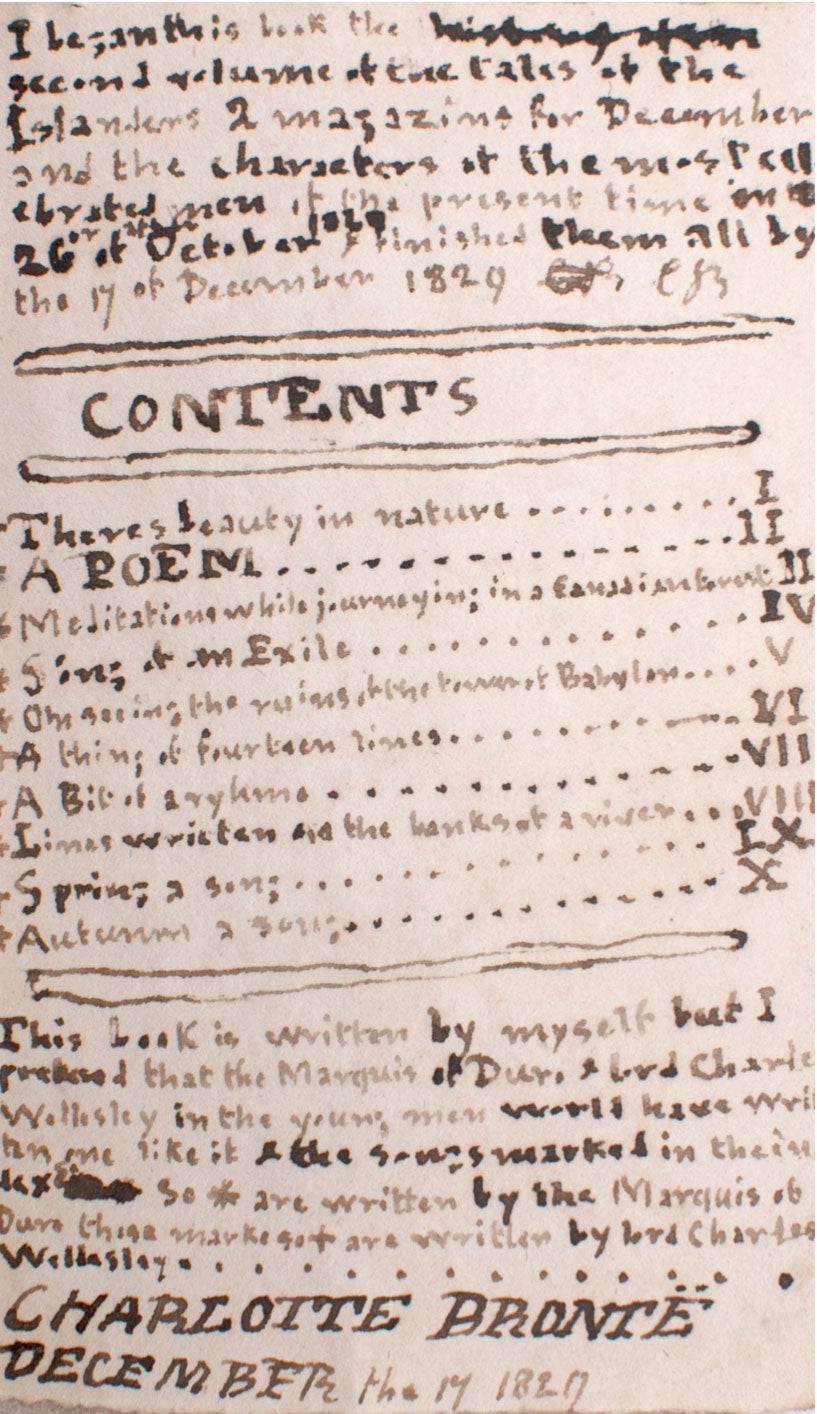 I began this book the
second volume of the tales of the
Islanders 2 magazine for December
and the characters of the most cel
ebrated men of the present time on the
26 of October 1829 & finished them all by
the 17 of December 1829 CB
CONTENTS
Theres beauty in nature .......... I
A POEM .......... II
Meditations while journeying in a Canadian forest III
Song of an Exile .......... IV
On seeing the ruins of the tower of Babylon .... V
A thing of fourteen lines .......... VI
A Bit of a ryhme .......... VII
Lines written on the banks of a river ... VIII
Spring a song .......... IX
Autumn a song .......... X
This book is written by myself but I
pretend that the Marquis of Duro & lord Charles
Wellesley in the young men world have writ
ten one like it & the songs marked in the in
dex so * are written by the Marquis of
Duro those marked so + are written by lord Charles
Wellesley ..........
CHARLOTTE BRONTË
DECEMBER the 17 1829